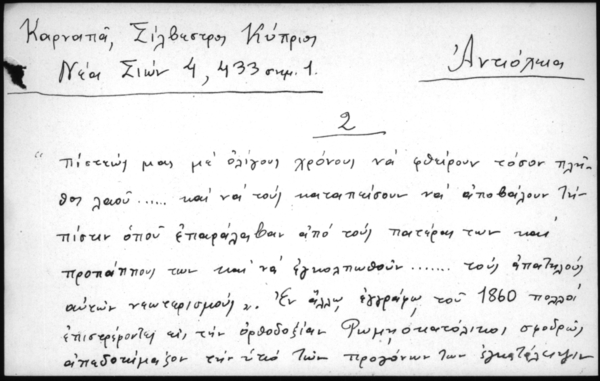 Καρναπᾶ, Σίλβεστρος Κύπριος
Νέα Σιών 4, 433 σημ. 1.
Ἀντιόχεια
2
" πίστεώς μας μὲ ὀλίγους χρόνους νὰ φθείρουν τόσον πλῆ-
θος λαοῦ ...... καὶ νὰ τοὺς καταπείσουν νὰ ἀποβάλουν τὴν
πίστιν ὁποῦ ἐπαράλαβαν ἀπὸ τοὺς πατέρας των καὶ
προπάππους των καὶ νὰ ἐγκολπωθοῦν ....... τοὺς ἀπατηλοὺς
αὐτῶν νεωτερισμούς ". Ἐν ἄλλῳ ἐγγράφῳ τοῦ 1860 πολλοὶ
ἐπιστρέφοντες εἰς τὴν ὀρθοδοξίαν Ρωμηοκατόλικοι σφοδρῶς
ἀπεδοκίμαζον τὴν ὑπὸ τῶν προγόνων των ἐγκατάλειψιν